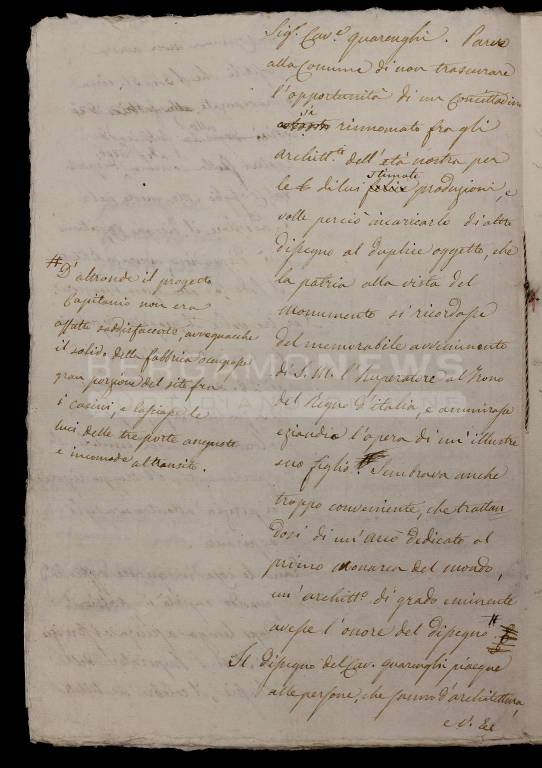 Sig.r Cav.e quarenghi. Parve
alla Comune di non trascurare
l'opportunità di un Concittadino
sì rinnomato fra gli
archit.ti dell'età nostra per
le di lui stimate produzioni, e
volle perciò incaricarlo di altro
disegno al duplice oggetto, che
la patria alla vista del
Monumento si ricordasse
del memorabile avvenimento
di S. M. l'Imperatore al Trono
del Regno d'italia, e ammirasse
eziandio l'opera di un' illustre
suo figlio. Sembrava anche
troppo conveniente, che trattan
dosi di un'arco dedicato al
primo Monarca del mondo,
un' archit.o di grado eminente
avesse l'onore del disegno. #
Il disegno del Cav. quarenghi piacque
alle persone, che sanno d'architettura,
# D'altronde il progetto
Capitanio non era
affatto soddisfacente, avvegnacche
il solido della fabbrica occupasse
gran porzione del sito fra
i casini, e lasciasse le
luci delle tre porte anguste
e incomode al transito.
BERGAMONEWS